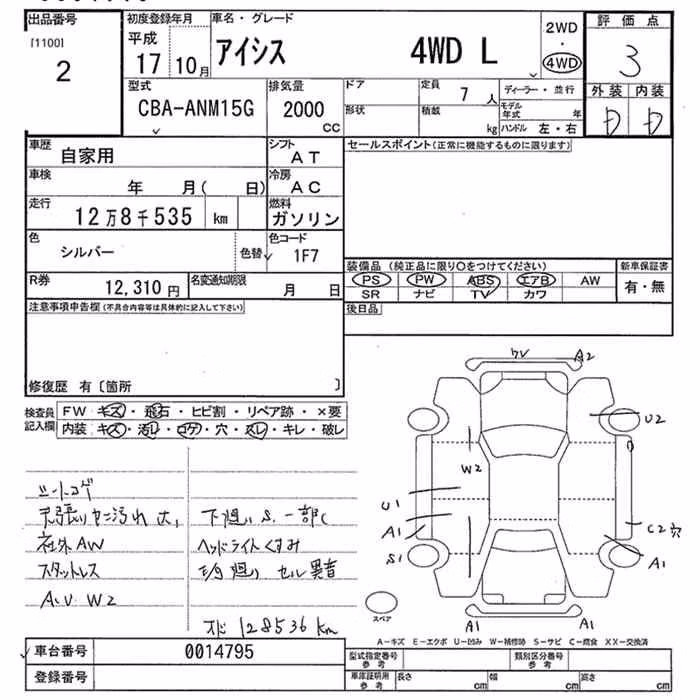 出品番号
[1100]
2
初度登録年月
平成
17 10月
車名・グレード
アイシス 4WD L
2WD
・
4WD
評価点
3
外装 内装
D D
型式
CBA-ANM15G
排気量
2000
cc
ドア
形状
定員
7 人
積載
kg
ディーラー・並行
モデル年式 年
ハンドル 左・右
車歴
自家用
シフト
AT
車検
年 月( 日)
冷房
AC
走行
12万8千535 km
燃料
ガソリン
色
シルバー
色替
色コード
1F7
R券
12,310 円
名変通知期限
月 日
セールスポイント(正常に機能するものに限ります)
装備品 (純正品に限り○をつけてください)
PS PW ABS エアB AW
SR ナビ TV カワ
新車保証書
有・無
後日品
注意事項申告欄(不具合内容等は具体的に記入して下さい)
修復歴 有〔箇所 〕
検査員記入欄
FW キズ・飛石・ヒビ割・リペア跡・×要
内装 キズ・汚れ・コゲ・穴・スレ・キレ・破レ
シートコゲ
天張りヤニ汚れ大
社外AW
スタットレス
A.U W2
下廻りS.一部C
ヘッドライトくすみ
セル異音
オド 128536km
ワレ A2
U2
W2
U1
A1
S1
C2穴
A1
A1 A1
スペア
A-キズ E-エクボ U-凹み W-補修跡 S-サビ C-腐食 XX-交換済
車台番号 0014795
登録番号
型式指定番号
参考
類別区分番号
参考
車庫証明用
参考
長さ cm 幅 cm 高さ cm